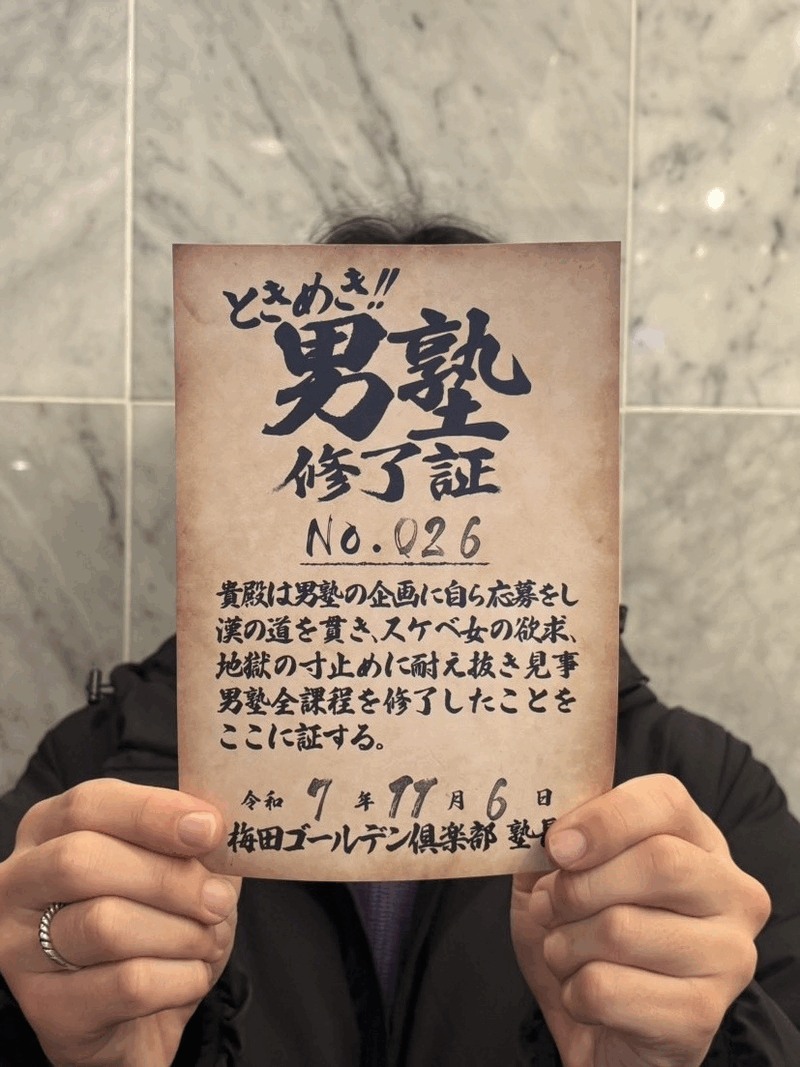 ときめき!!
男塾
修了証
No.026
貴殿は男塾の企画に自ら応募をし
漢の道を貫き、スケベ女の欲求、
地獄の寸止めに耐え抜き見事
男塾全課程を修了したことを
ここに証する。
令和 7 年 11 月 6 日
梅田ゴールデン倶楽部 塾長